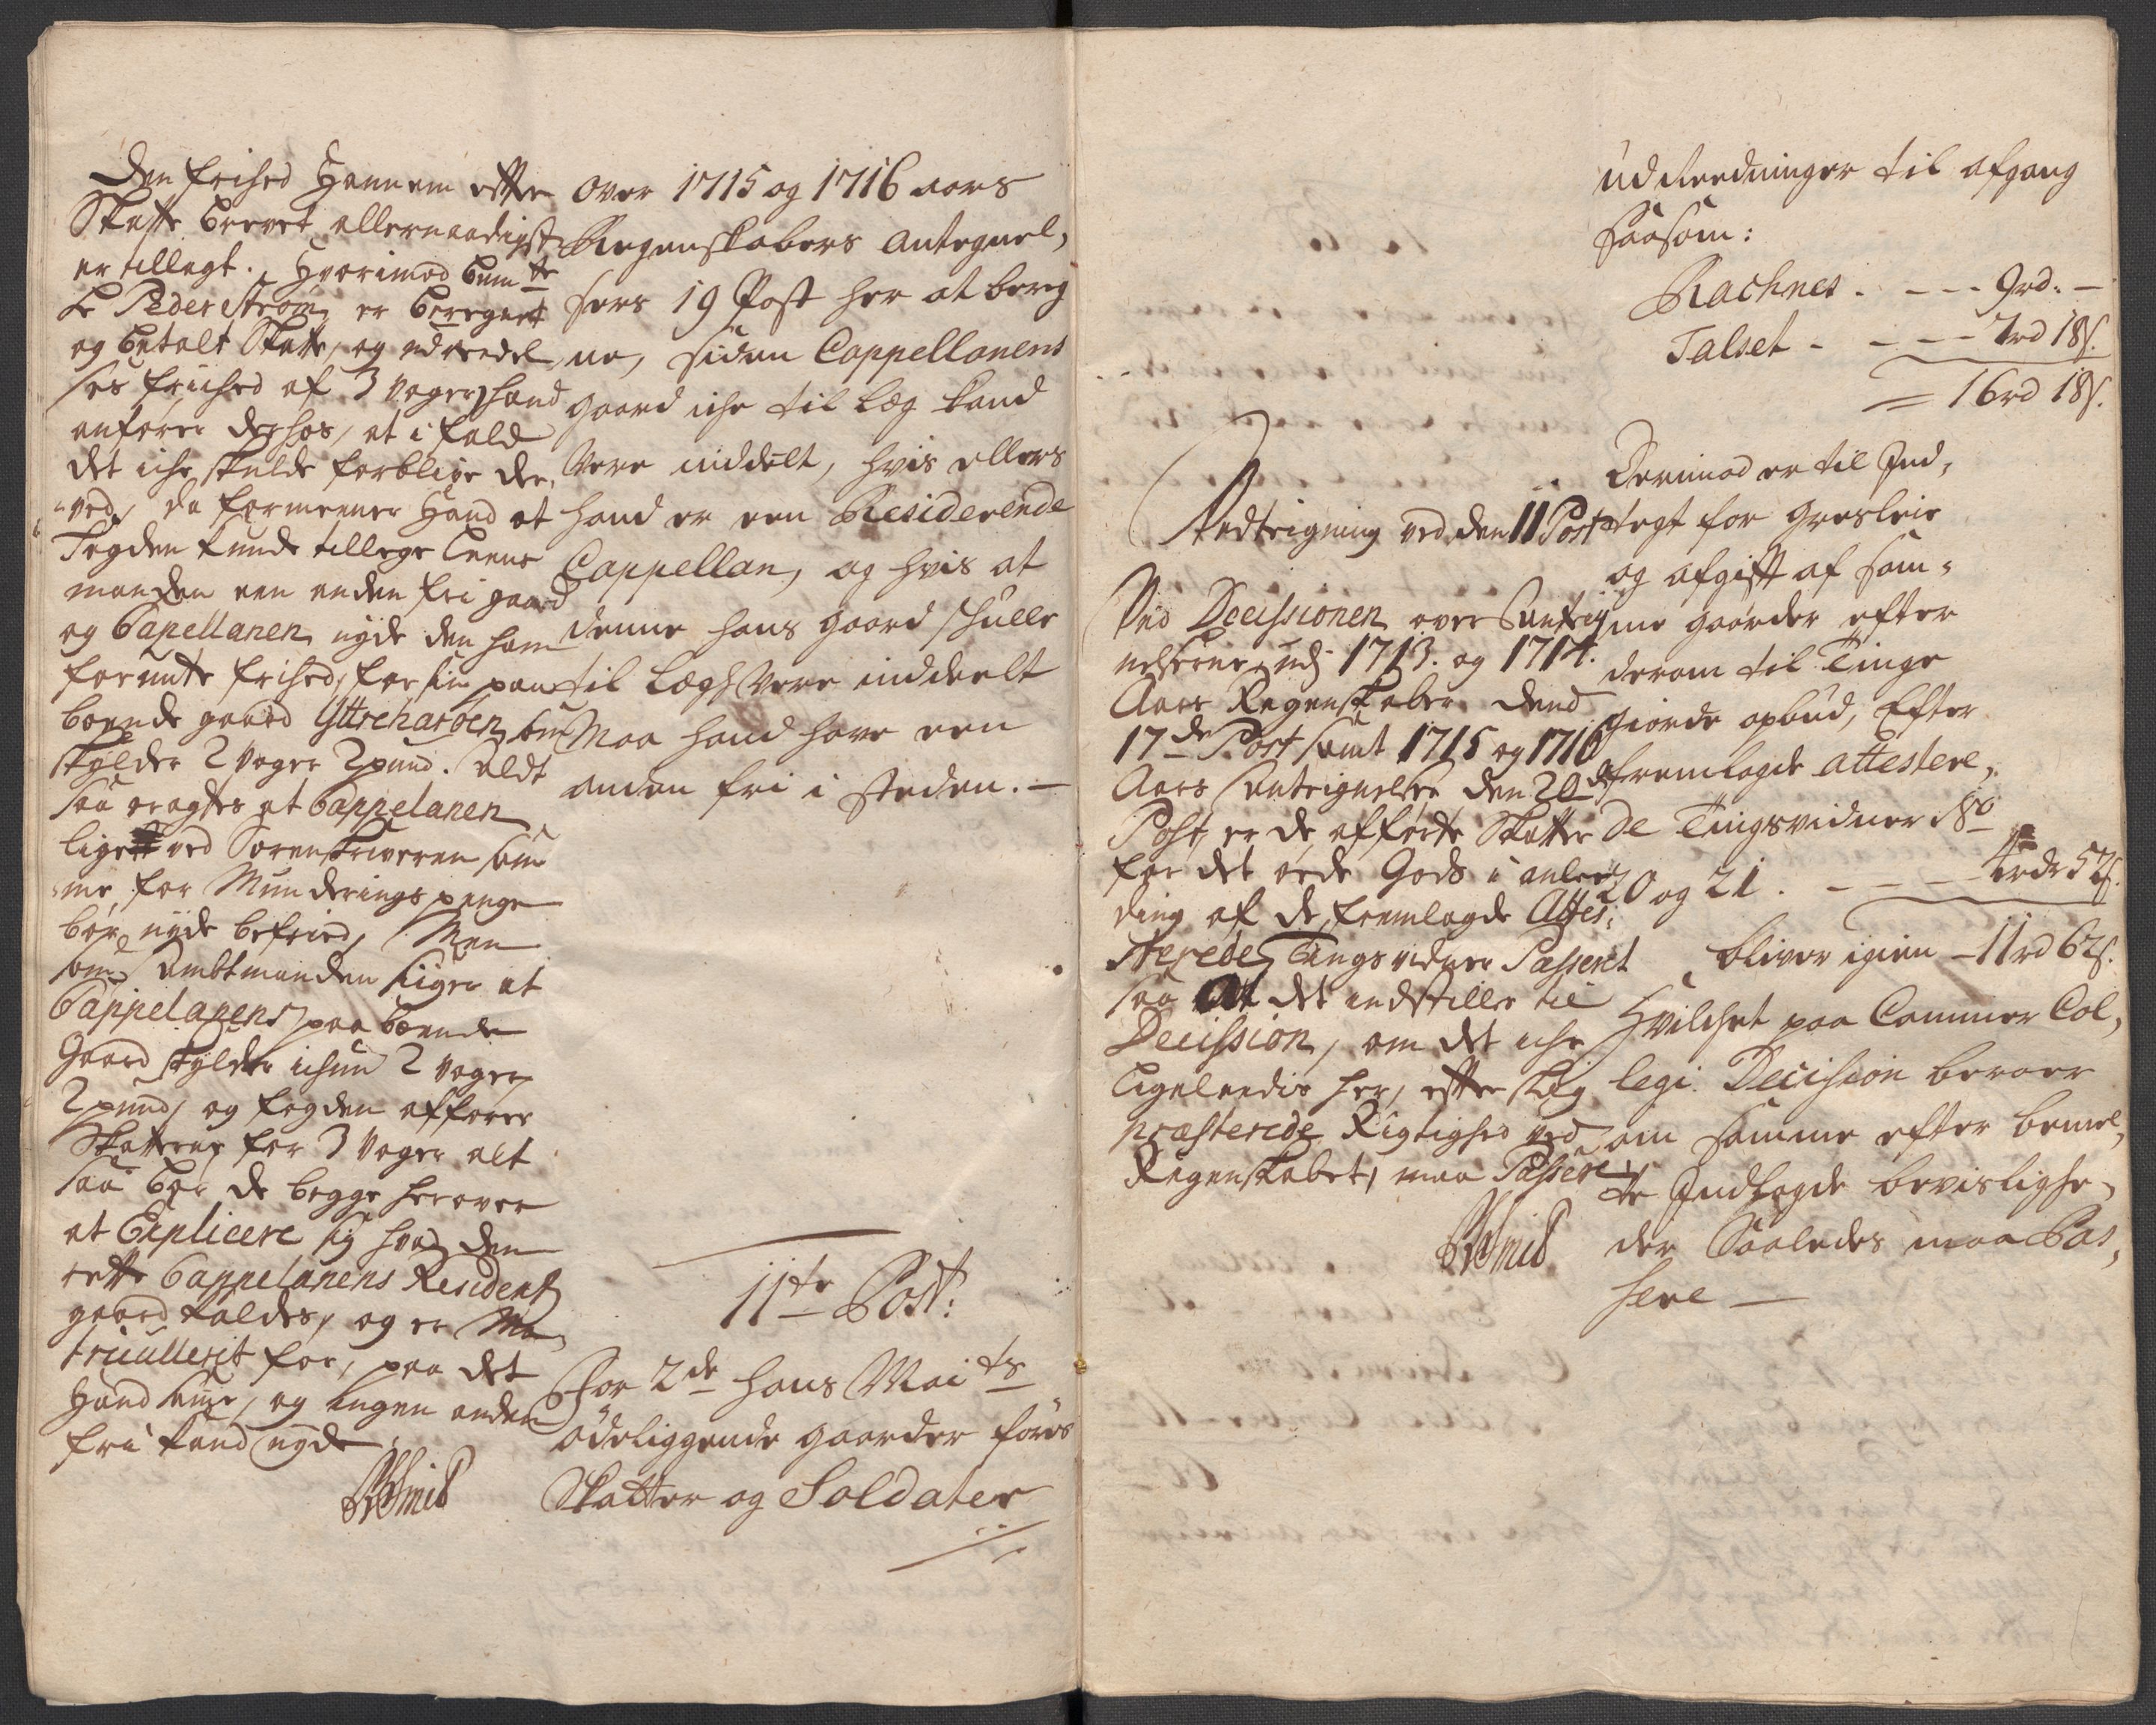 Den frihed Hannem efter
Skatte brevet allernaadigst
er tillegt. Hvorimod bem.te
Hr Peder Strøm, er beregnet
og betalt Skatter, og udreedel
ses friihed af 3 voger, hand
anfører derhos, at i fald
det iche skulde forblive der,
ved, da formeener Hand at
Fogden kunde tillege Leens
manden een anden fri gaard
og Capellanen nyde den ham
formente frihed, for sin paa
boende gaard Yttreharøen, som
skylder 2 voger 2 pund. Aldt
saa eragtes at Cappelanen
ligesom ved Sorenskriveren sam
me, for Munderings penge
bør nyde befried, Men
som Ambtmanden siiger at
Cappelanens paa boende
Gaard skylder ichun 2 voger
2 pund, og fogden affører
Skatterne for 3 voger alt
saa bør de begge herover
at Explicere sig hvad den
rette Cappelanens Residentz
gaard kaldes, og er Ma
triculleret for, paa det
Hand samme, og Ingen anden
fri kand nyde.
Over 1715 og 1716 aars
Regenskabers Antegnel,
sers 19 Post her at bereg
ne, siden Cappellanens
gaard iche til Leg kand
være inddelt, hvis ellers
hand er een Residerende
Cappellan, og hvis at
denne hans gaard skulle
til Legd være inddeelt
Maa hand have een
anden fri i steden. —
11te Post:
For 2de hans Mai.ts
ødeliggende gaarder føres
Skatter og Soldater
Anteigning ved den 11 Post
Ved Decissionen over Anteig
nelserne ved 1713. og 1714.
Aars Regenskaber. dend
17de Post samt 1715 og 1716
Aars Anteignelser den 20de
Post, er de afførte Skatter
for det øede Gods i anlee
ding af de fremlagde Attes,
sterede Tingsvidner Passeret
saa At det indstilles til
Decission, om det iche
ligeleedis her, efter slig
præsterede Rigtighed ved
Regenskabet, maa Passere,
udReedninger til afgang
saasom:
Rachnes - - - - 9rd. —
Talset - - - - - 7rd 18s.
= 16rd 18s.
Derimod er til Ind,
tegt for gresleie
og afgift af sam,
me gaarder efter
derom til Tinge
giorde opbud, Efter
fremlagde attestere,
de Tingsvidner No
20 og 21. - - - 4rdr 52s.
bliver igien — 11rd 62s.
Hvilchet paa Cammer Col,
legi Decission beroer
om samme efter bemel,
te Indlagde bevislighe,
der Saaledes maa Pas,
sere —